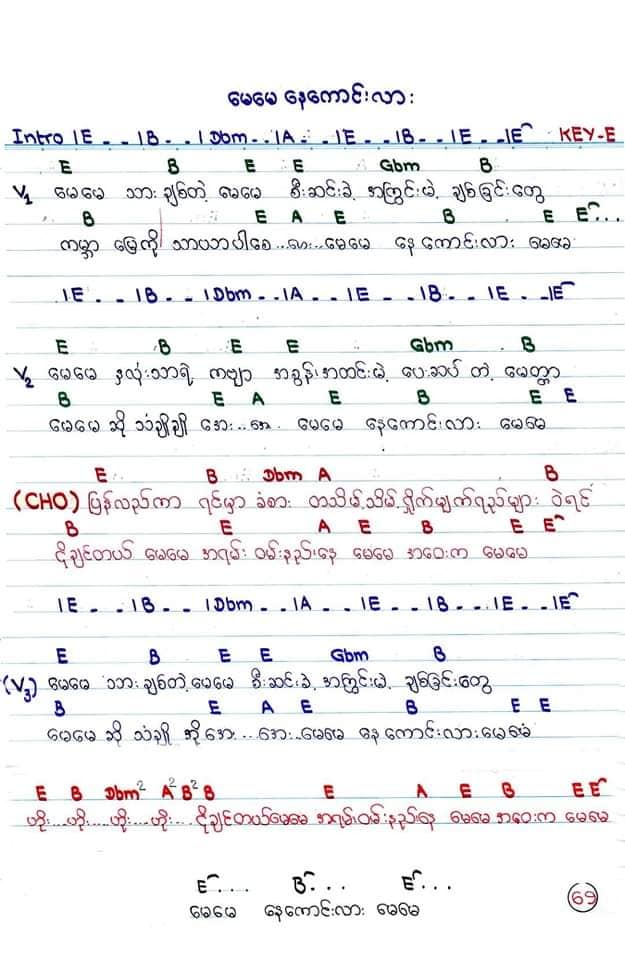 မေမေ နေကောင်းလား
Intro | E - - | B - - | Dbm - - | A - - | E - - | B - - | E - - | E KEY-E
E B E E Gbm B
V1 မေမေ သား ချစ်တဲ့ မေမေ စီးဆင်းခဲ့ အကြွင်းမဲ့ ချစ်ခြင်းတွေ
B E A E B E E...
ကမ္ဘာ မြေကို သာယာပါစေ ... မေမေ နေကောင်းလား မေမေ
| E - - | B - - | Dbm - - | A - - | E - - | B - - | E - - | E
E B E E Gbm B
V2 မေမေ နှလုံးသားရဲ့ ကဗျာ အခွန်းအတင်းမဲ့ ပေးဆပ် တဲ့ မေတ္တာ
B E A E B E E
မေမေ ဆို သံချိုချို အေး.. အေး မေမေ နေကောင်းလား မေမေ
E B Dbm A B
(CHO) ပြန်လည်ကာ ရင်မှာ ခံစား တသိမ့်သိမ့် ရှိုက်မျက်ရည်များ ဝဲရင်
B E A E B E E
ငိုချင်တယ် မေမေ အရမ်း ဝမ်းနည်းနေ မေမေ အဝေးက မေမေ
| E - - | B - - | Dbm - - | A - - | E - - | B - - | E - - | E
E B E E Gbm B
(V3) မေမေ သား ချစ်တဲ့ မေမေ စီးဆင်းခဲ့ အကြွင်းမဲ့ ချစ်ခြင်းတွေ
B E A E B E E
မေမေ ဆို သံချို အေး... အေး.. မေမေ နေကောင်းလား မေမေ
E B Dbm² A² B² B E A E B E E
ဟိုး... ဟိုး.... ဟိုး... ဟိုး... ငိုချင်တယ်မေမေ အရမ်းဝမ်းနည်းနေ မေမေ အဝေးက မေမေ
E... B... E...
မေမေ နေကောင်းလား မေမေ
69